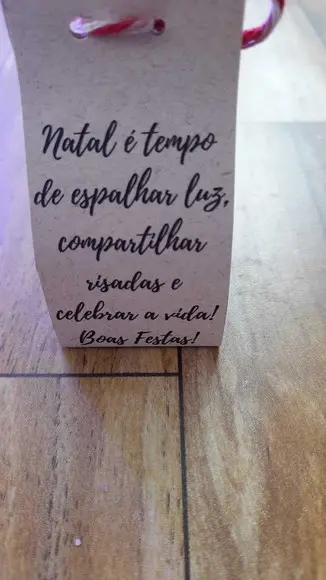 Natal é tempo
de espalhar luz,
compartilhar
risadas e
celebrar a vida!
Boas Festas!